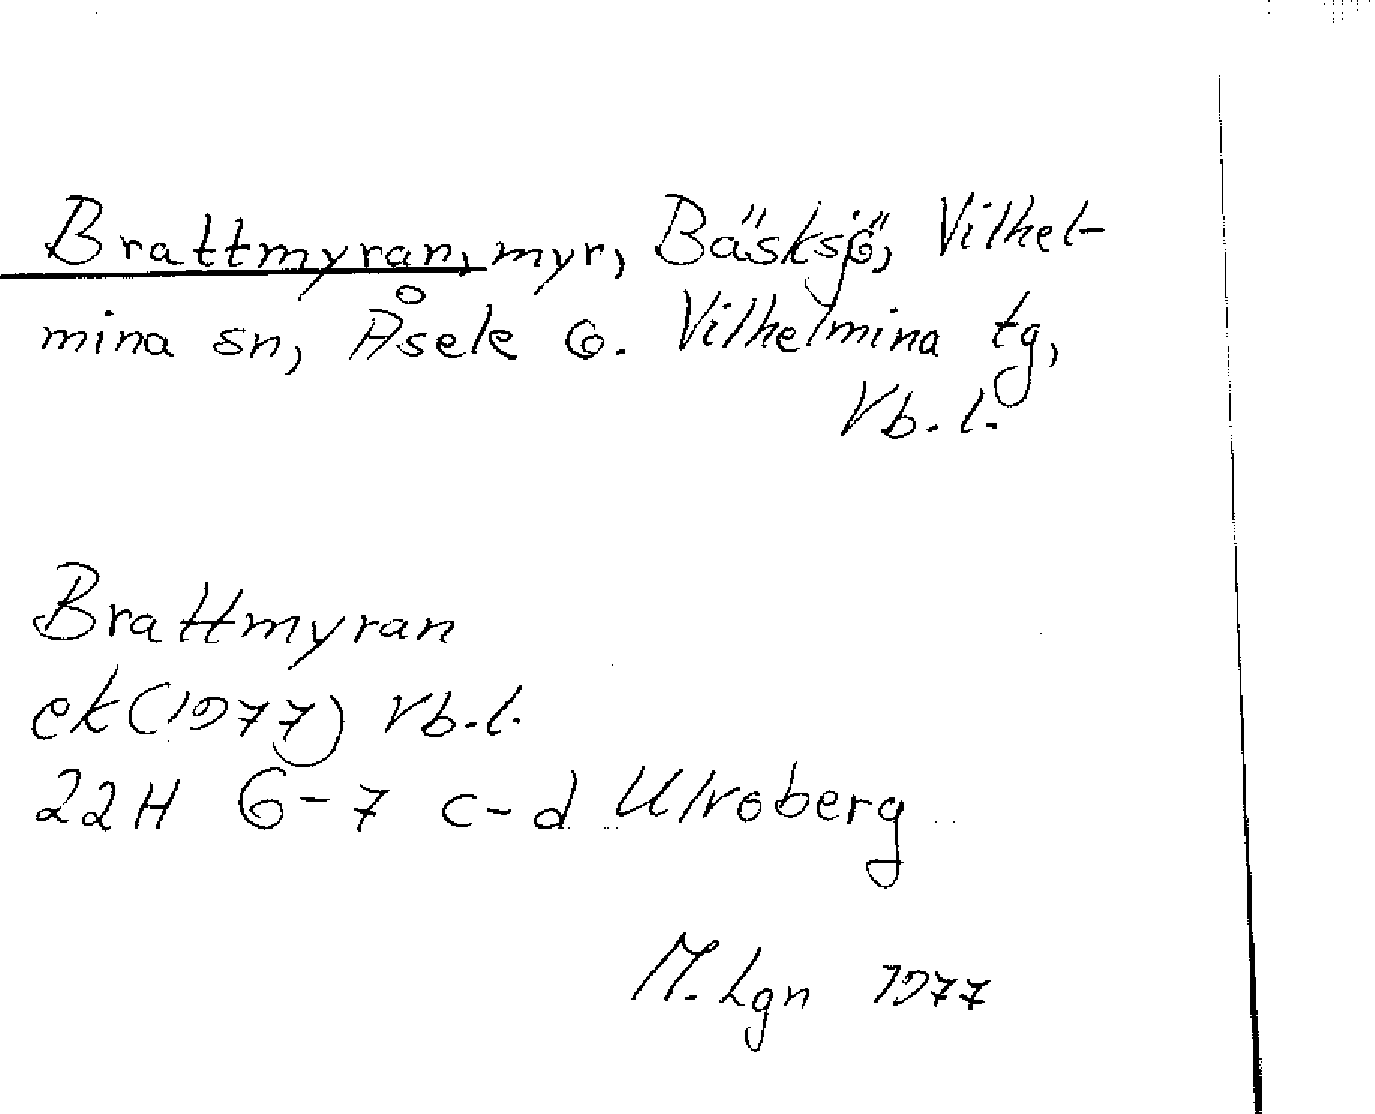 Brattmyran, myr, Bäsksjö, Vilhel-
mina sn, Åsele o. Vilhelmina tg,
Vb. l.
Brattmyran
ek (1977) Vb. l.
22H 6-7 c-d Ulvoberg
M. Lgn 1977